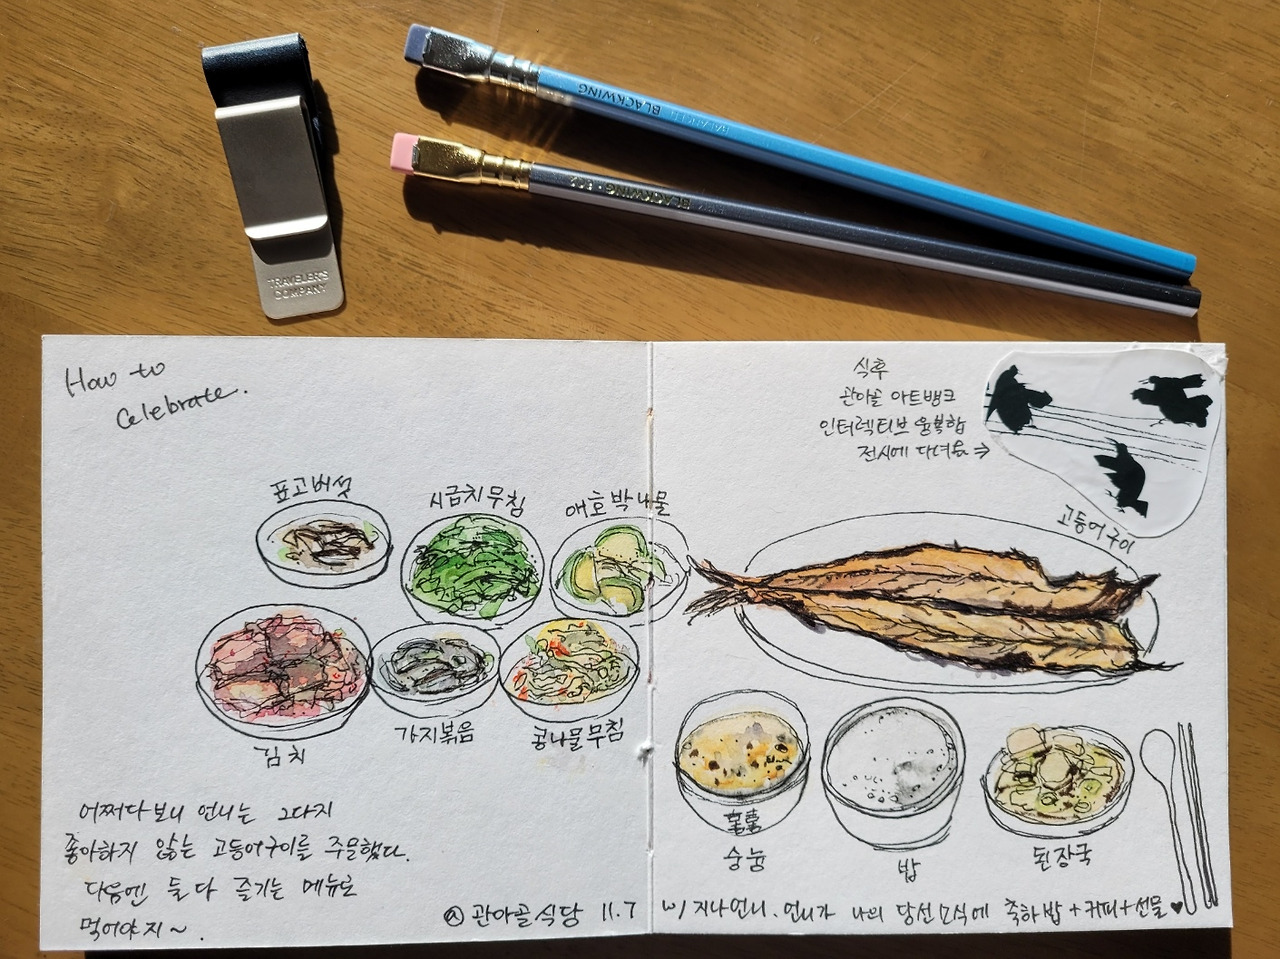 TRAVELER'S
COMPANY
BALANCED BLACKWING
BLACKWING 602
How to
Celebrate.
식후
관아골 아트뱅크
인터렉티브 융복합
전시에 다녀옴 →
표고버섯
시금치무침
애호박나물
고등어구이
김치
가지볶음
콩나물무침
숭늉
밥
된장국
어쩌다보니 언니는 그다지
좋아하지 않는 고등어구이를 주문했다.
다음엔 둘 다 즐기는 메뉴로
먹어야지~.
@ 관아골식당 11.7
w/ 지나언니. 언니가 나의 당선소식에 축하밥+커피+선물♥